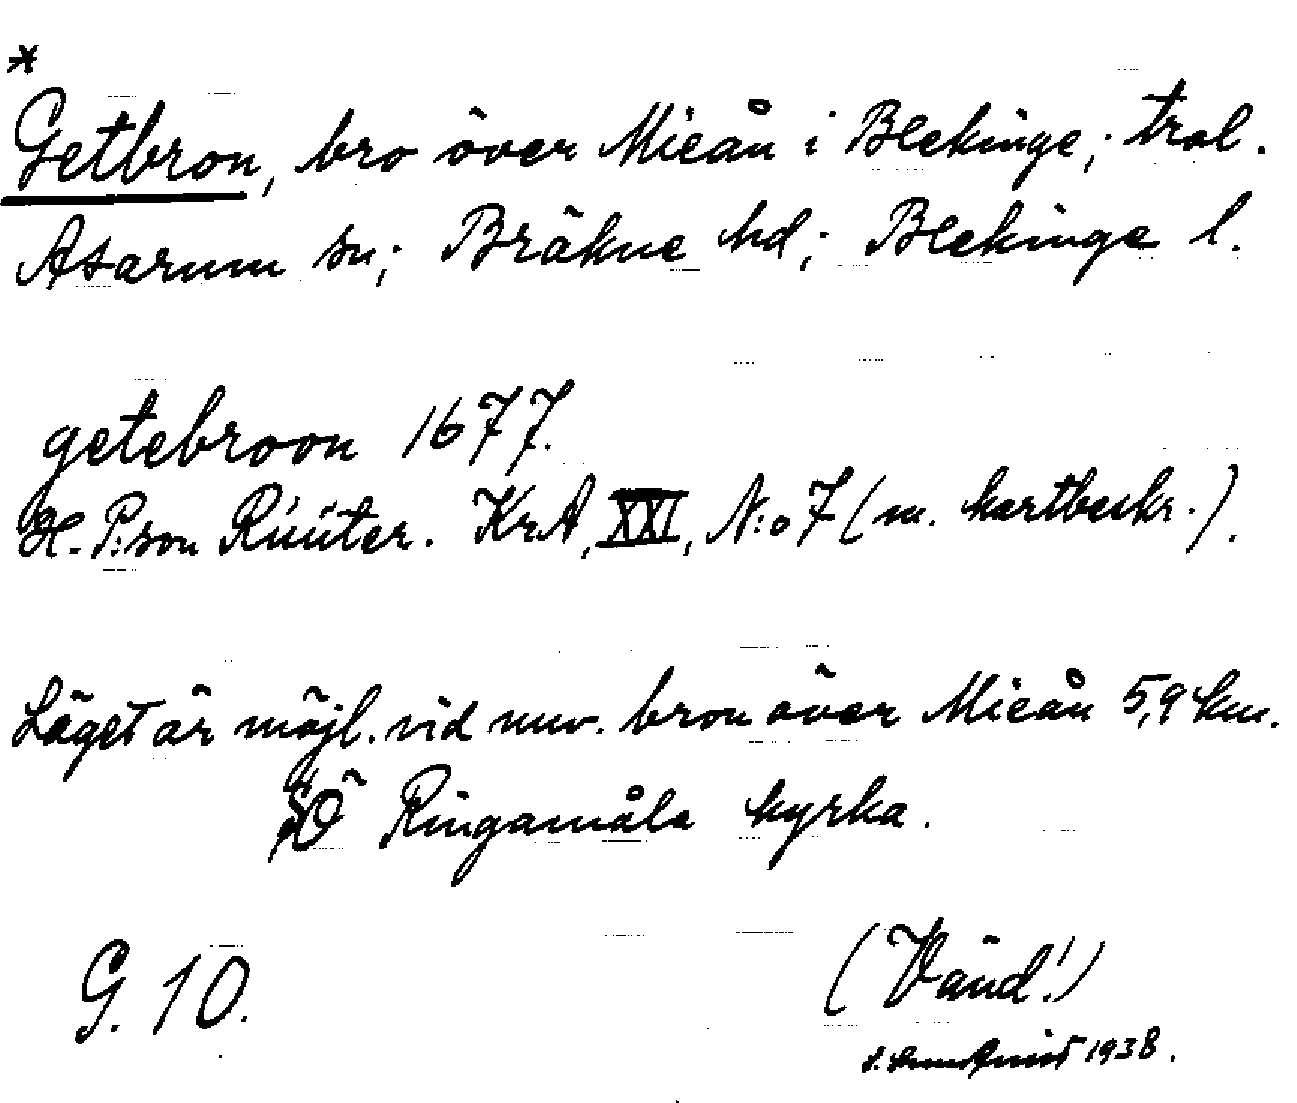 *
Getbron, bro över Mieån i Blekinge; trol.
Asarum sn; Bräkne hd; Blekinge l.
getebroon 1677.
H. P:son Rüüter. KrA, XXI, N:o 7 (m. kartbeskr.).
Läget är möjl. vid nuv. bron över Mieån 5,9 km.
SÖ Ringamåla kyrka.
G. 10.
(Vänd!)
1938.